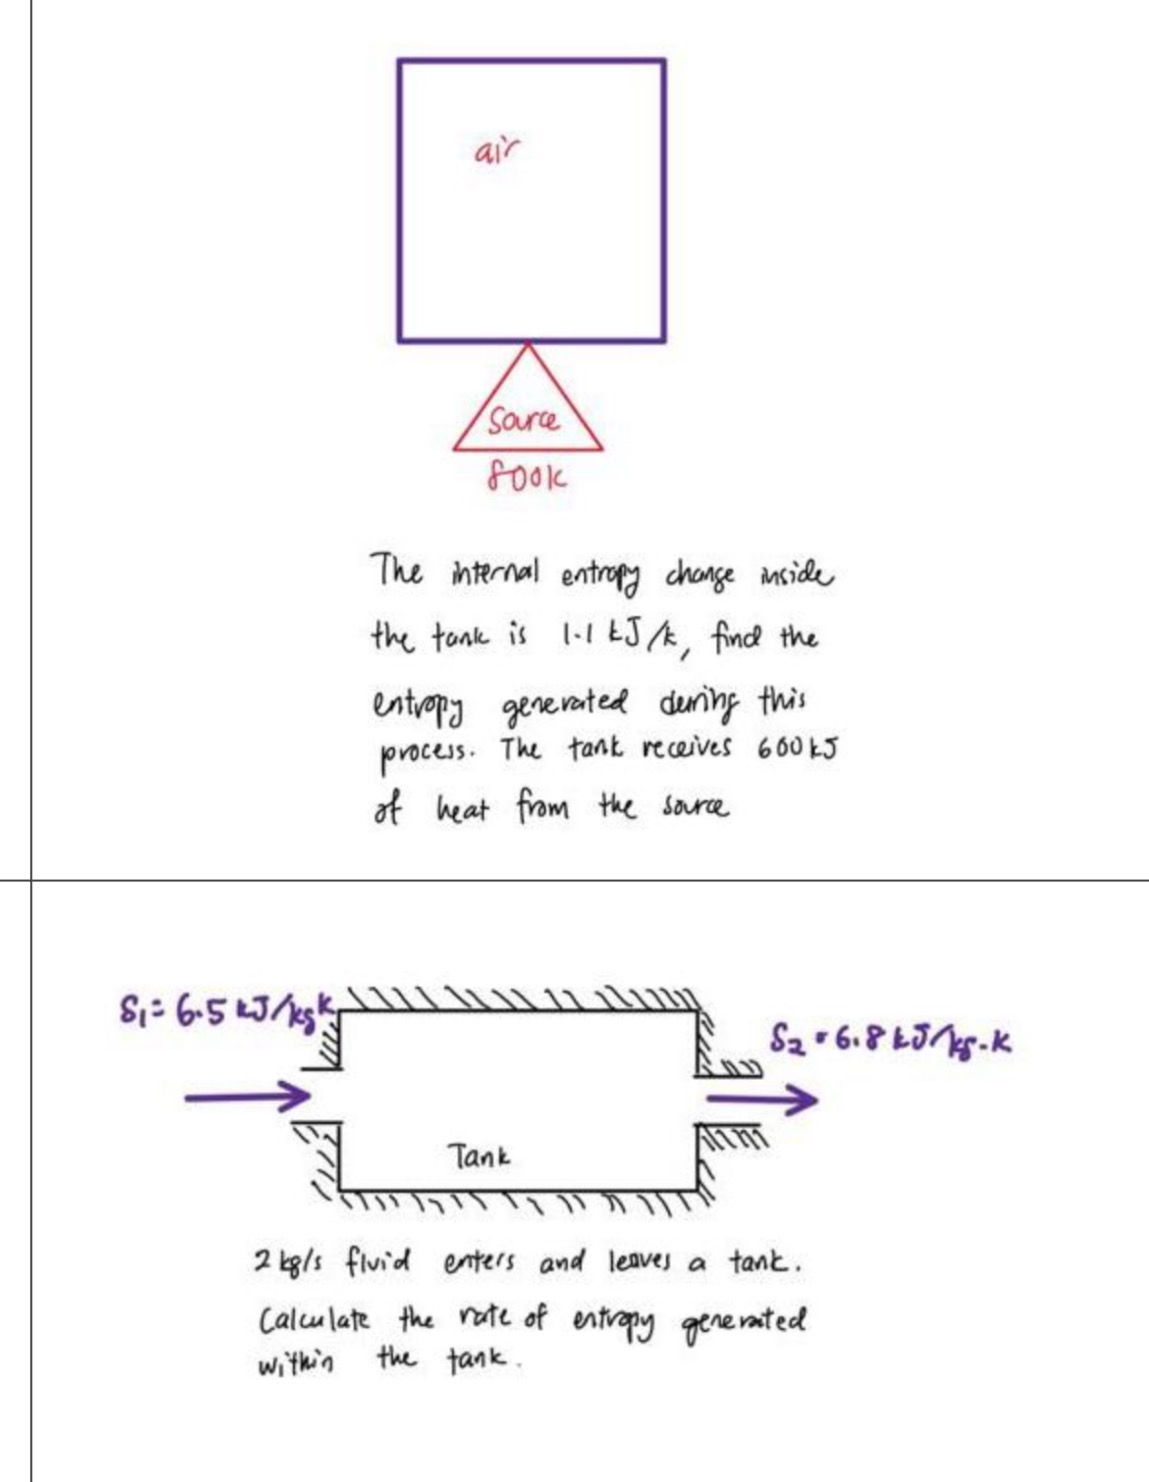 air
Source
800k
The internal entropy change inside
the tank is 1.1 kJ/k, find the
entropy generated during this
process. The tank receives 600 kJ
of heat from the source
S₁ = 6.5 kJ/kgk
S₂ = 6.8 kJ/kg.k
Tank
2 kg/s fluid enters and leaves a tank.
Calculate the rate of entropy generated
within the tank.